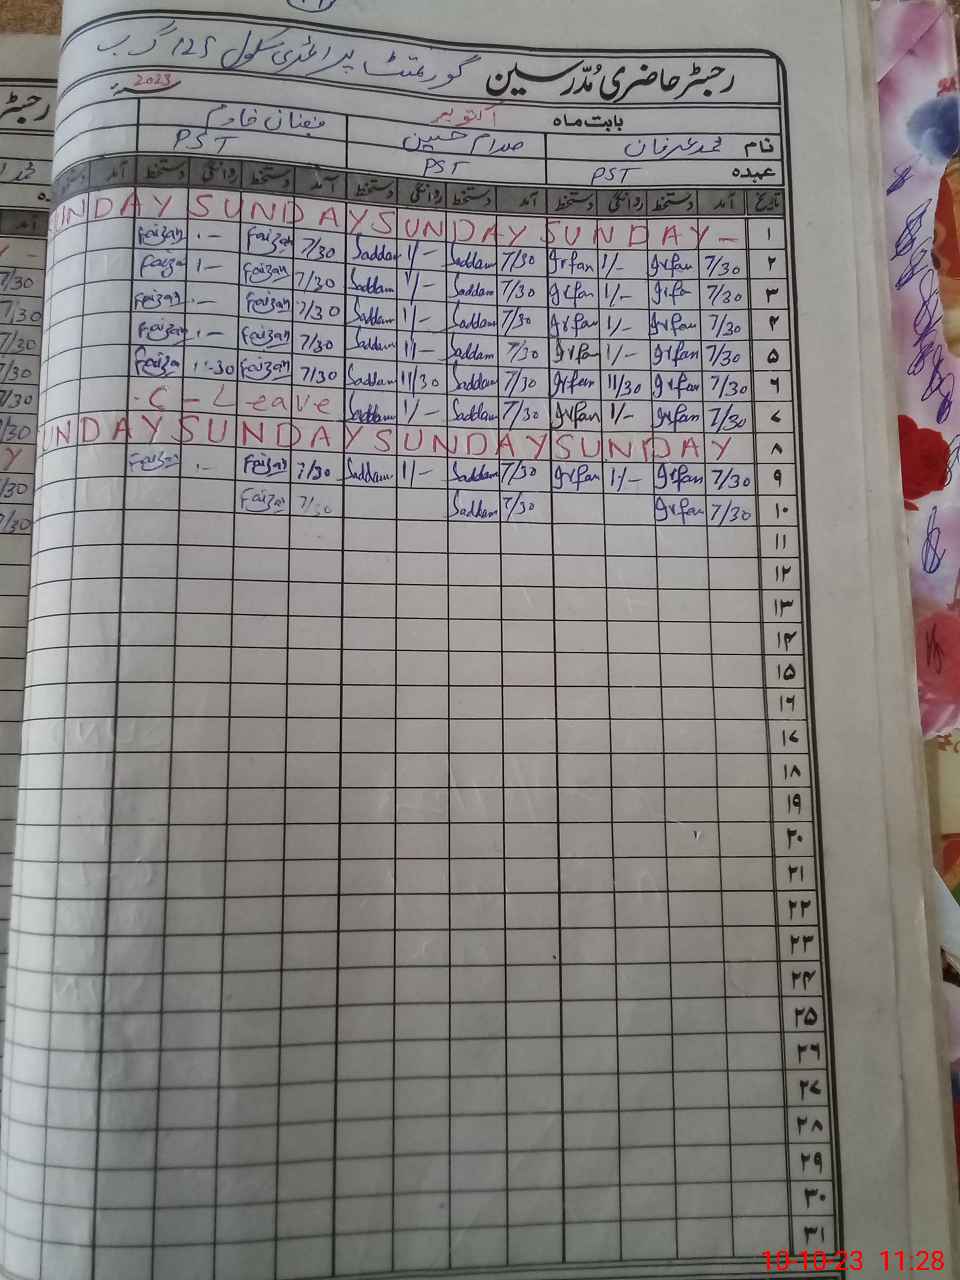 گورنمنٹ پرائمری سکول 125 گ ب
رجسٹر حاضری مُدرّسین
2023
بابت ماہ اکتوبر
نام محمد عرفان صدام حسین فیضان خادم
عہدہ PST PST PST
تاریخ آمد دستخط روانگی دستخط آمد دستخط روانگی دستخط آمد دستخط روانگی دستخط آمد دستخط
۱ SUNDAY SUNDAY SUNDAY SUNDAY
۲ 7/30 Irfan 1/- Irfan 7/30 Saddam 1/- Saddam 7/30 Faizan 1- Faizan
۳ 7/30 Irfan 1/- Irfan 7/30 Saddam 1/- Saddam 7/30 Faizan 1- Faizan
۴ 7/30 Irfan 1/- Irfan 7/30 Saddam 1/- Saddam 7/30 Faizan Faizan
۵ 7/30 Irfan 1/- Irfan 7/30 Saddam 1/- Saddam 7/30 Faizan 1- Faizan
۶ 7/30 Irfan 11/30 Irfan 7/30 Saddam 11/30 Saddam 7/30 Faizan 11-30 Faizan
۷ 7/30 Irfan 1/- Irfan 7/30 Saddam 1/- Saddam C-Leave
۸ SUNDAY SUNDAY SUNDAY SUNDAY
۹ 7/30 Irfan 1/- Irfan 7/30 Saddam 1/- Saddam 7/30 Faizan 1- Faizan
۱۰ 7/30 Irfan 7/30 Saddam 7/30 Faizan
۱۱
۱۲
۱۳
۱۴
۱۵
۱۶
۱۷
۱۸
۱۹
۲۰
۲۱
۲۲
۲۳
۲۴
۲۵
۲۶
۲۷
۲۸
۲۹
۳۰
۳۱
10-10-23 11:28